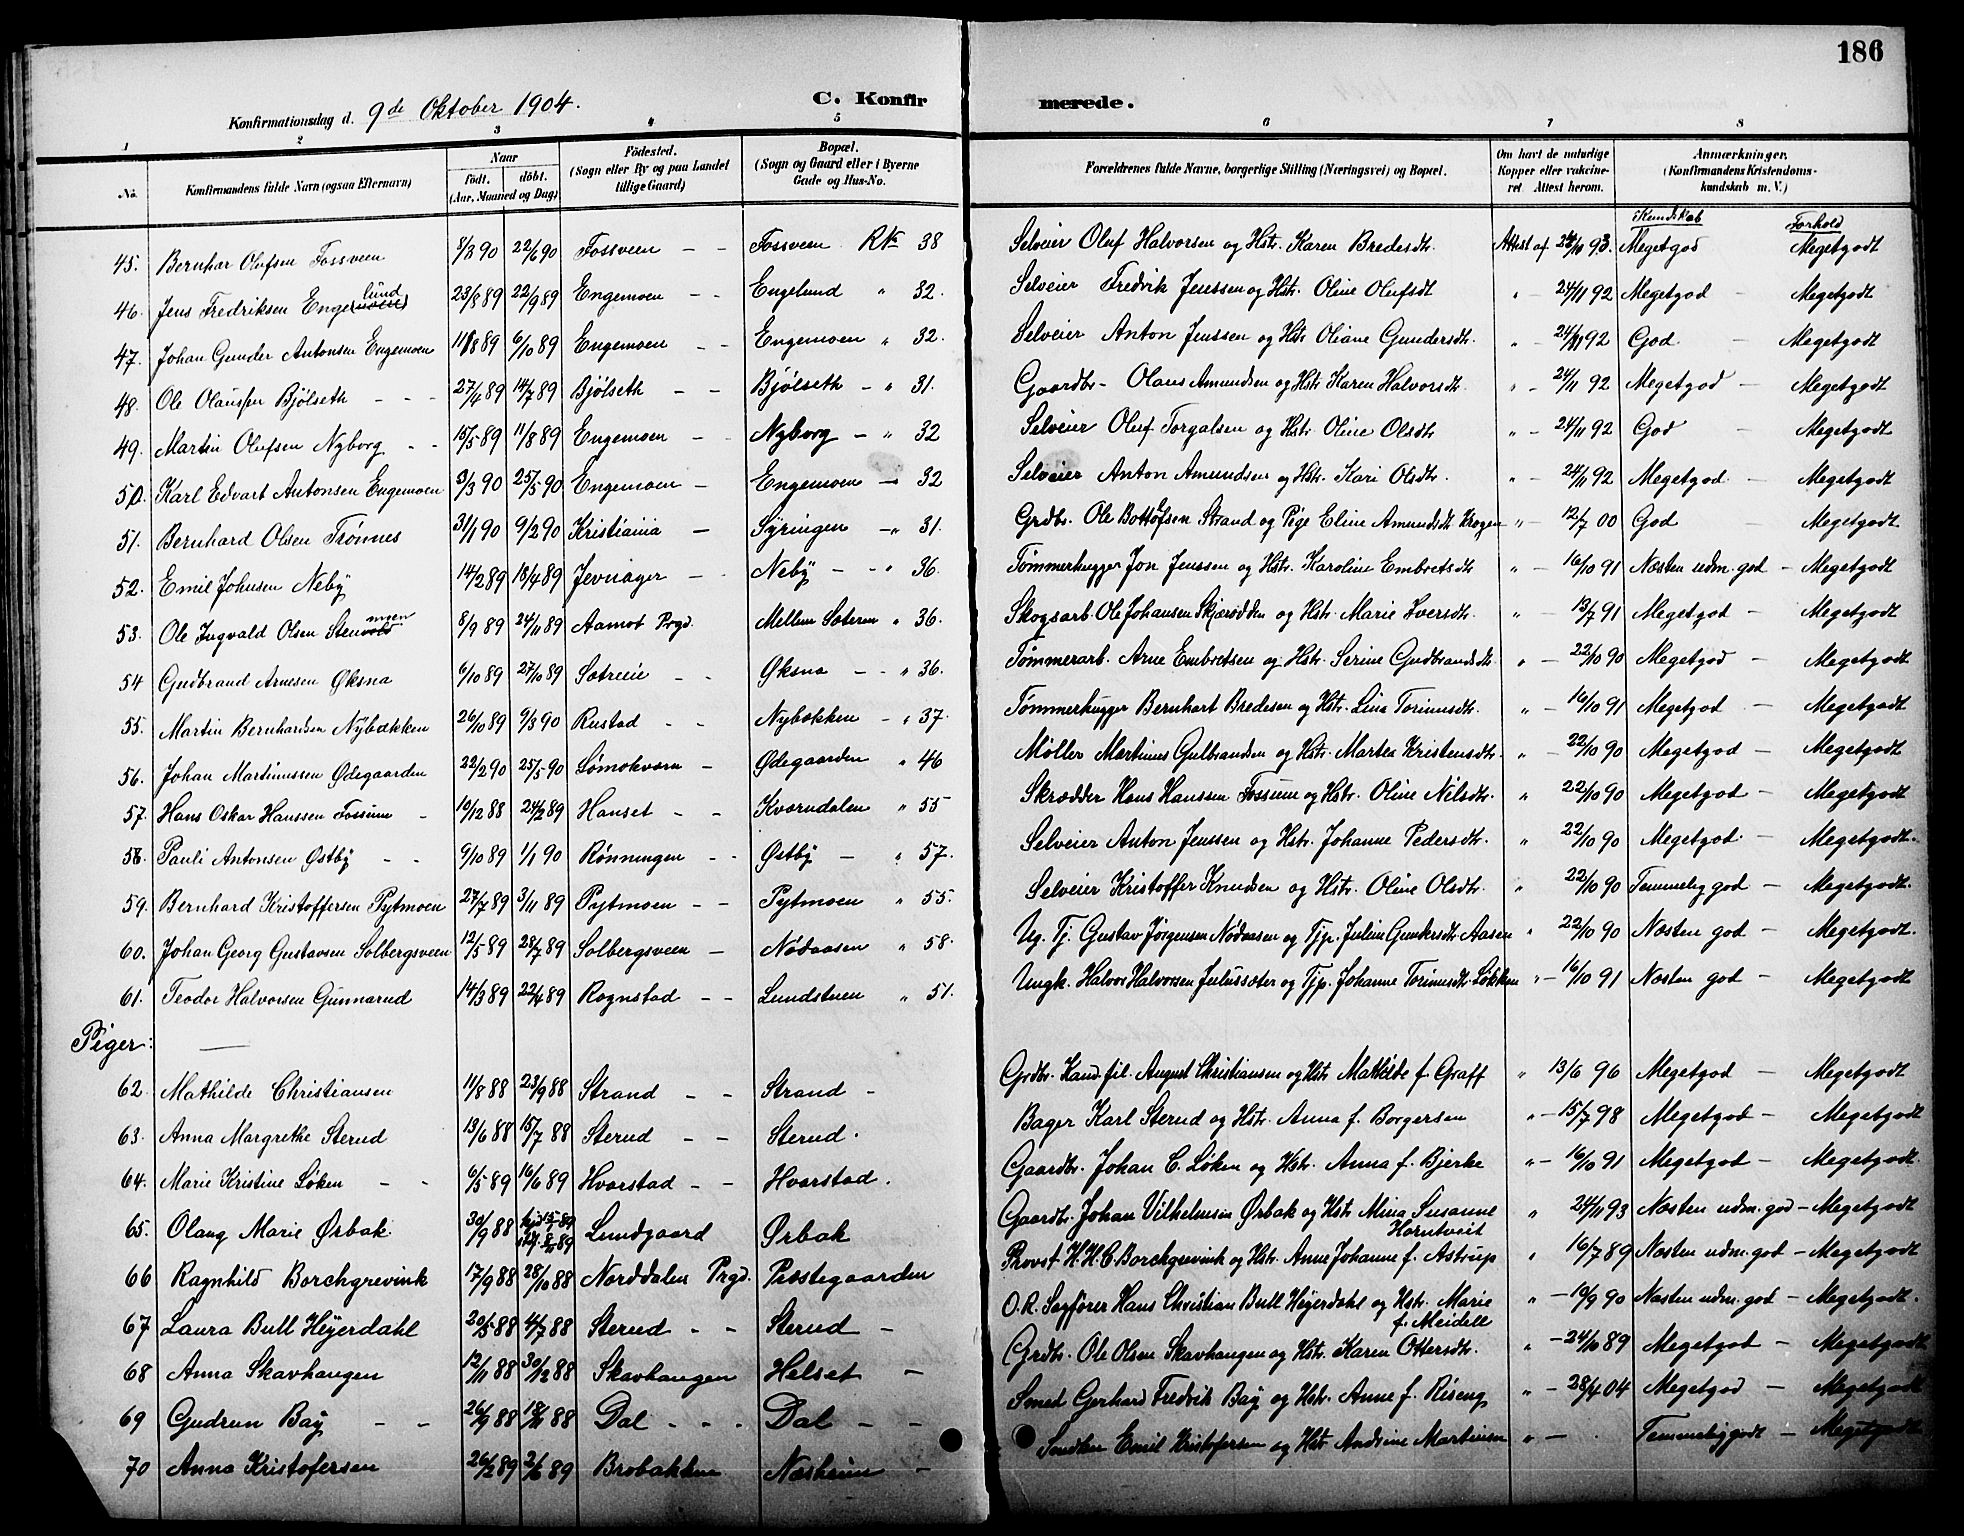 186
Konfirmationsdag d. 9de Oktober 1904. C. Konfirmerede.
1 2 3 4 5 6 7 8
No. Konfirmandens fulde Navn (ogsaa Efternavn) Naar födt. döbt. (Aar, Maaned og Dag) Födested. (Sogn eller By og paa Landet tillige Gaard) Bopæl. (Sogn og Gaard eller i Byerne Gade og Hus-No. Forældrenes fulde Navne, borgerlige Stilling (Næringsvei) og Bopæl. Om havt de naturlige Kopper eller vakcineret. Attest herom. Anmærkninger. (Konfirmandens Kristendomskundskab m. V.)
Kundskab Forhold
45. Bernhar Olufsen Fossveen 8/3 90 22/6 90 Fossveen - - Fossveen Rk 38 Selveier Oluf Halvorsen og Hstr. Karen Bredesdtr. Attest af 24/11 93. Megetgod Megetgodt
46. Jens Fredriksen Engelund 23/8 89 22/9 89 Engemoen - - Engelund " 32. Selveier Fredrik Jenssen og Hstr. Oline Olufsdt " - 24/11 92 Megetgod - Megetgodt
47. Johan Gunder Antonsen Engemoen 11/8 89 6/10 89 Engemoen - - Engemoen " 32. Selveier Anton Jenssen og Hstr Oliane Gundersdtr. " - 24/11 92 God. - Megetgodt
48. Ole Olaussen Bjølseth - - - 27/4 89 14/7 89 Bjølseth - - Bjølseth - " 31. Gaardbr- Olaus Amundsen og Hstr Karen Halvorsdt. " - 24/11 92 Megetgod - Megetgodt
49. Martin Olufsen Nyborg - - 15/5 89 11/8 89 Engemoen - - Nyborg - " 32 Selveier Oluf Torgalsen og Hstr Oline Olsdtr " - 24/11 92 God - Megetgodt
50. Karl Edvart Antonsen Engemoen 3/3 90 25/5 90 Engemoen - Engemoen - " 32 Selveier Anton Amundsen og Hstr. Kari Olsdtr. " - 24/11 92 Megetgod. - Megetgodt
51. Bernhard Olsen Trønnes 31/1 90 9/2 90 Kristiania - Syringen - " 31. Grdbr. Ole Bottolfsen Strand og Pige Eline Amundsdt Krogen " - 12/7 00 God - Megetgodt
52. Emil Johnsen Neby 14/2 89 18/4 89 Jevnager - - Neby - - " 36. Tømmerhugger Jon Jenssen og Hstr. Karoline Embretsdtr " - 16/10 91 Næsten udm. god - Megetgodt
53. Ole Ingvald Olsen Stenmoen 8/9 89 24/11 89 Aamot Prgd. Mellem Sæteren " 36. Skogsarb. Ole Johansen Skjærodden og Hstr. Marie Iversdtr. " - 13/7 91 Megetgod - Megetgodt
54 Gudbrand Arnesen Øksna 6/10 89 27/10 89 Sætreeie - - Øksna - - " 36. Tømmerarb. Arne Embretsen og Hstr. Serine Gudbrandsdtr. " - 22/10 90 Megetgod - Megetgodt
55. Martin Bernhardsen Nybækken 26/10 89 9/3 90 Rustad - - Nybækken - " 37. Tømmerhugger Bernhart Bredesen og Hstr. Lina Torinusdtr. " - 16/10 91 Megetgod - Megetgodt
56. Johan Martinussen Ødegaarden 22/2 90 25/5 90 Lømokværn - Ødegaarden " 46 Møller Martinus Gulbrandsen og Hstr. Martea Kristensdtr. " - 22/10 90 Megetgod - Megetgodt
57. Hans Oskar Hanssen Fossum - 10/12 88 24/2 89 Hanset - - Kværndalen " 55 Skrædder Hans Hanssen Fossum og Hstr. Oline Nilsdtr. " 22/10 90 Megetgod - Megetgodt
58. Pauli Antonsen Østby - - 9/10 89 1/1 90 Rønningen - - Østby - " 57. Selveier Anton Jenssen og Hstr. Johanne Pedersdtr. " 22/10 90 Megetgod. - Megetgodt.
59. Bernhard Kristoffersen Pytmoen 27/7 89 3/11 89 Pytmoen - - Pytmoen " 55. Selveier Kristoffer Knudsen og Hstr. Oline Olsdtr. " 22/10 90 Temmelig god - Megetgodt.
60. Johan Georg Gustavsen Solbergsveen 12/5 89 28/7 89 Solbergsveen - Nødaasen " 58. Ug. Tj. Gustav Jørgensen Nødaasen og Tjp. Juline Gundersdtr. Aasen " 22/10 90 Næsten god - Megetgodt.
61. Teodor Halvorsen Gunnarud 14/3 89 22/4 89 Rognstad - - Lundstuen " 51. Ungk. Halvor Halvorsen Julussæter og Tjp. Johanne Torinusdtr. Løkken " - 16/10 91 Næsten god - Megetgodt
Piger:
62. Mathilde Christiansen 11/8 88 23/9 88 Strand - - Strand - Grdbr. Kand. fil. August Christiansen og Hstr Mathilde f. Graff " 13/6 96 Megetgod - Megetgodt
63. Anna Margrethe Sterud 13/6 88 15/7 88 Sterud - - Sterud. Bager Karl Sterud og Hstr. Anna f. Borgersen " - 15/7 98 Megetgod - Megetgodt
64. Marie Kristine Løken - - 6/5 89 16/6 89 Hvarstad - - Hvarstad. Gaardbr. Johan C. Løken og Hstr. Anna f. Bjerke " - 16/10 91 Megetgod - Megetgodt.
65. Olaug Marie Ørbak 30/9 88 Lundgaard Ørbak Gaardbr. Johan Vilhelmsen Ørbak og Hstr Mina Susanne Horntveit " 24/11 93 Næsten udm. god - Megetgodt
66 Ragnhild Borchgrevink 17/9 88 28/10 88 Norddalen Prgd. Præstegaarden Provst H. H. C. Borchgrevink og Hstr. Anne Johanne f. Astrup " 16/7 89 Næsten udm. god - Megetgodt
67 Laura Bull Heyerdahl 20/5 88 4/7 88 Sterud - - Sterud - O.R. Sagfører Hans Christian Bull Heyerdahl og Hstr. Marie f. Meidell " - 19/9 90 Næsten udm. god - Megetgodt.
68 Anna Skavhaugen 12/11 88 30/12 88 Skavhaugen Helset - Grdbr. Ole Olsen Skavhaugen og Hstr. Karen Ottersdtr. " - 24/10 89 Megetgod - Megetgodt
69 Gudrun Bay - - 26/9 88 18/11 88 Dal - - - Dal - - Smed Gerhard Fredrik Bay og Hstr. Anne f. Riseng " - 28/4 04 Megetgod - Megetgodt
70 Anna Kristofersen 26/2 89 2/6 89 Brobakken Næskrim - Emil Kristofersen og Hstr Andrine Martinsen " - Temmelig godt - Megetgodt